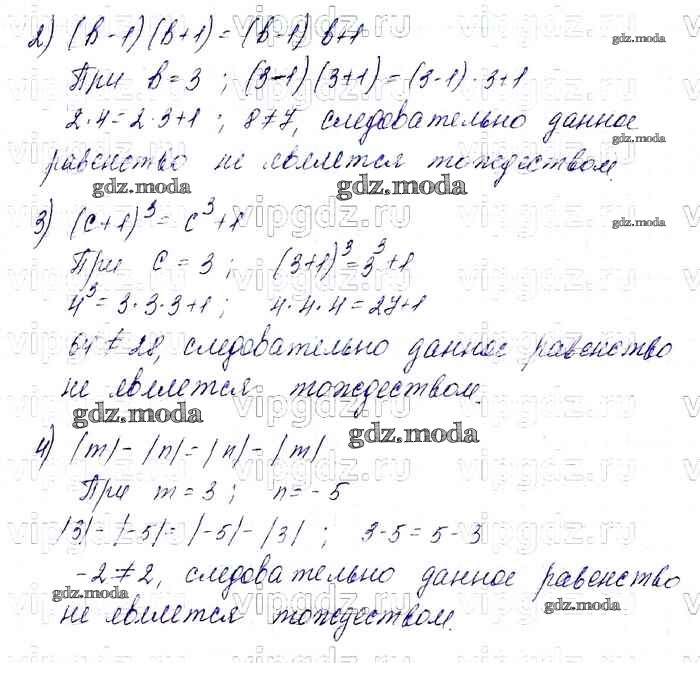 2) (b-1)(b+1)=(b-1)b+1
gdz.moda
При b=3; (3-1)(3+1)=(3-1)·3+1
2·4=2·3+1; 8≠7, следовательно данное
gdz.moda
равенство не является тождеством.
gdz.moda gdz.moda
3) (c+1)³=c³+1
gdz.moda
При c=3; (3+1)³=3³+1
4³=3·3·3+1; 4·4·4=27+1
64≠28, следовательно данное равенство
не является тождеством.
gdz.moda gdz.moda
4) |m|-|n|=|n|-|m|
При m=3; n=-5
|3|-|-5|=|-5|-|3|; 3-5=5-3
-2≠2, следовательно данное равенство
gdz.moda gdz.moda
не является тождеством.
vipgdz.ru